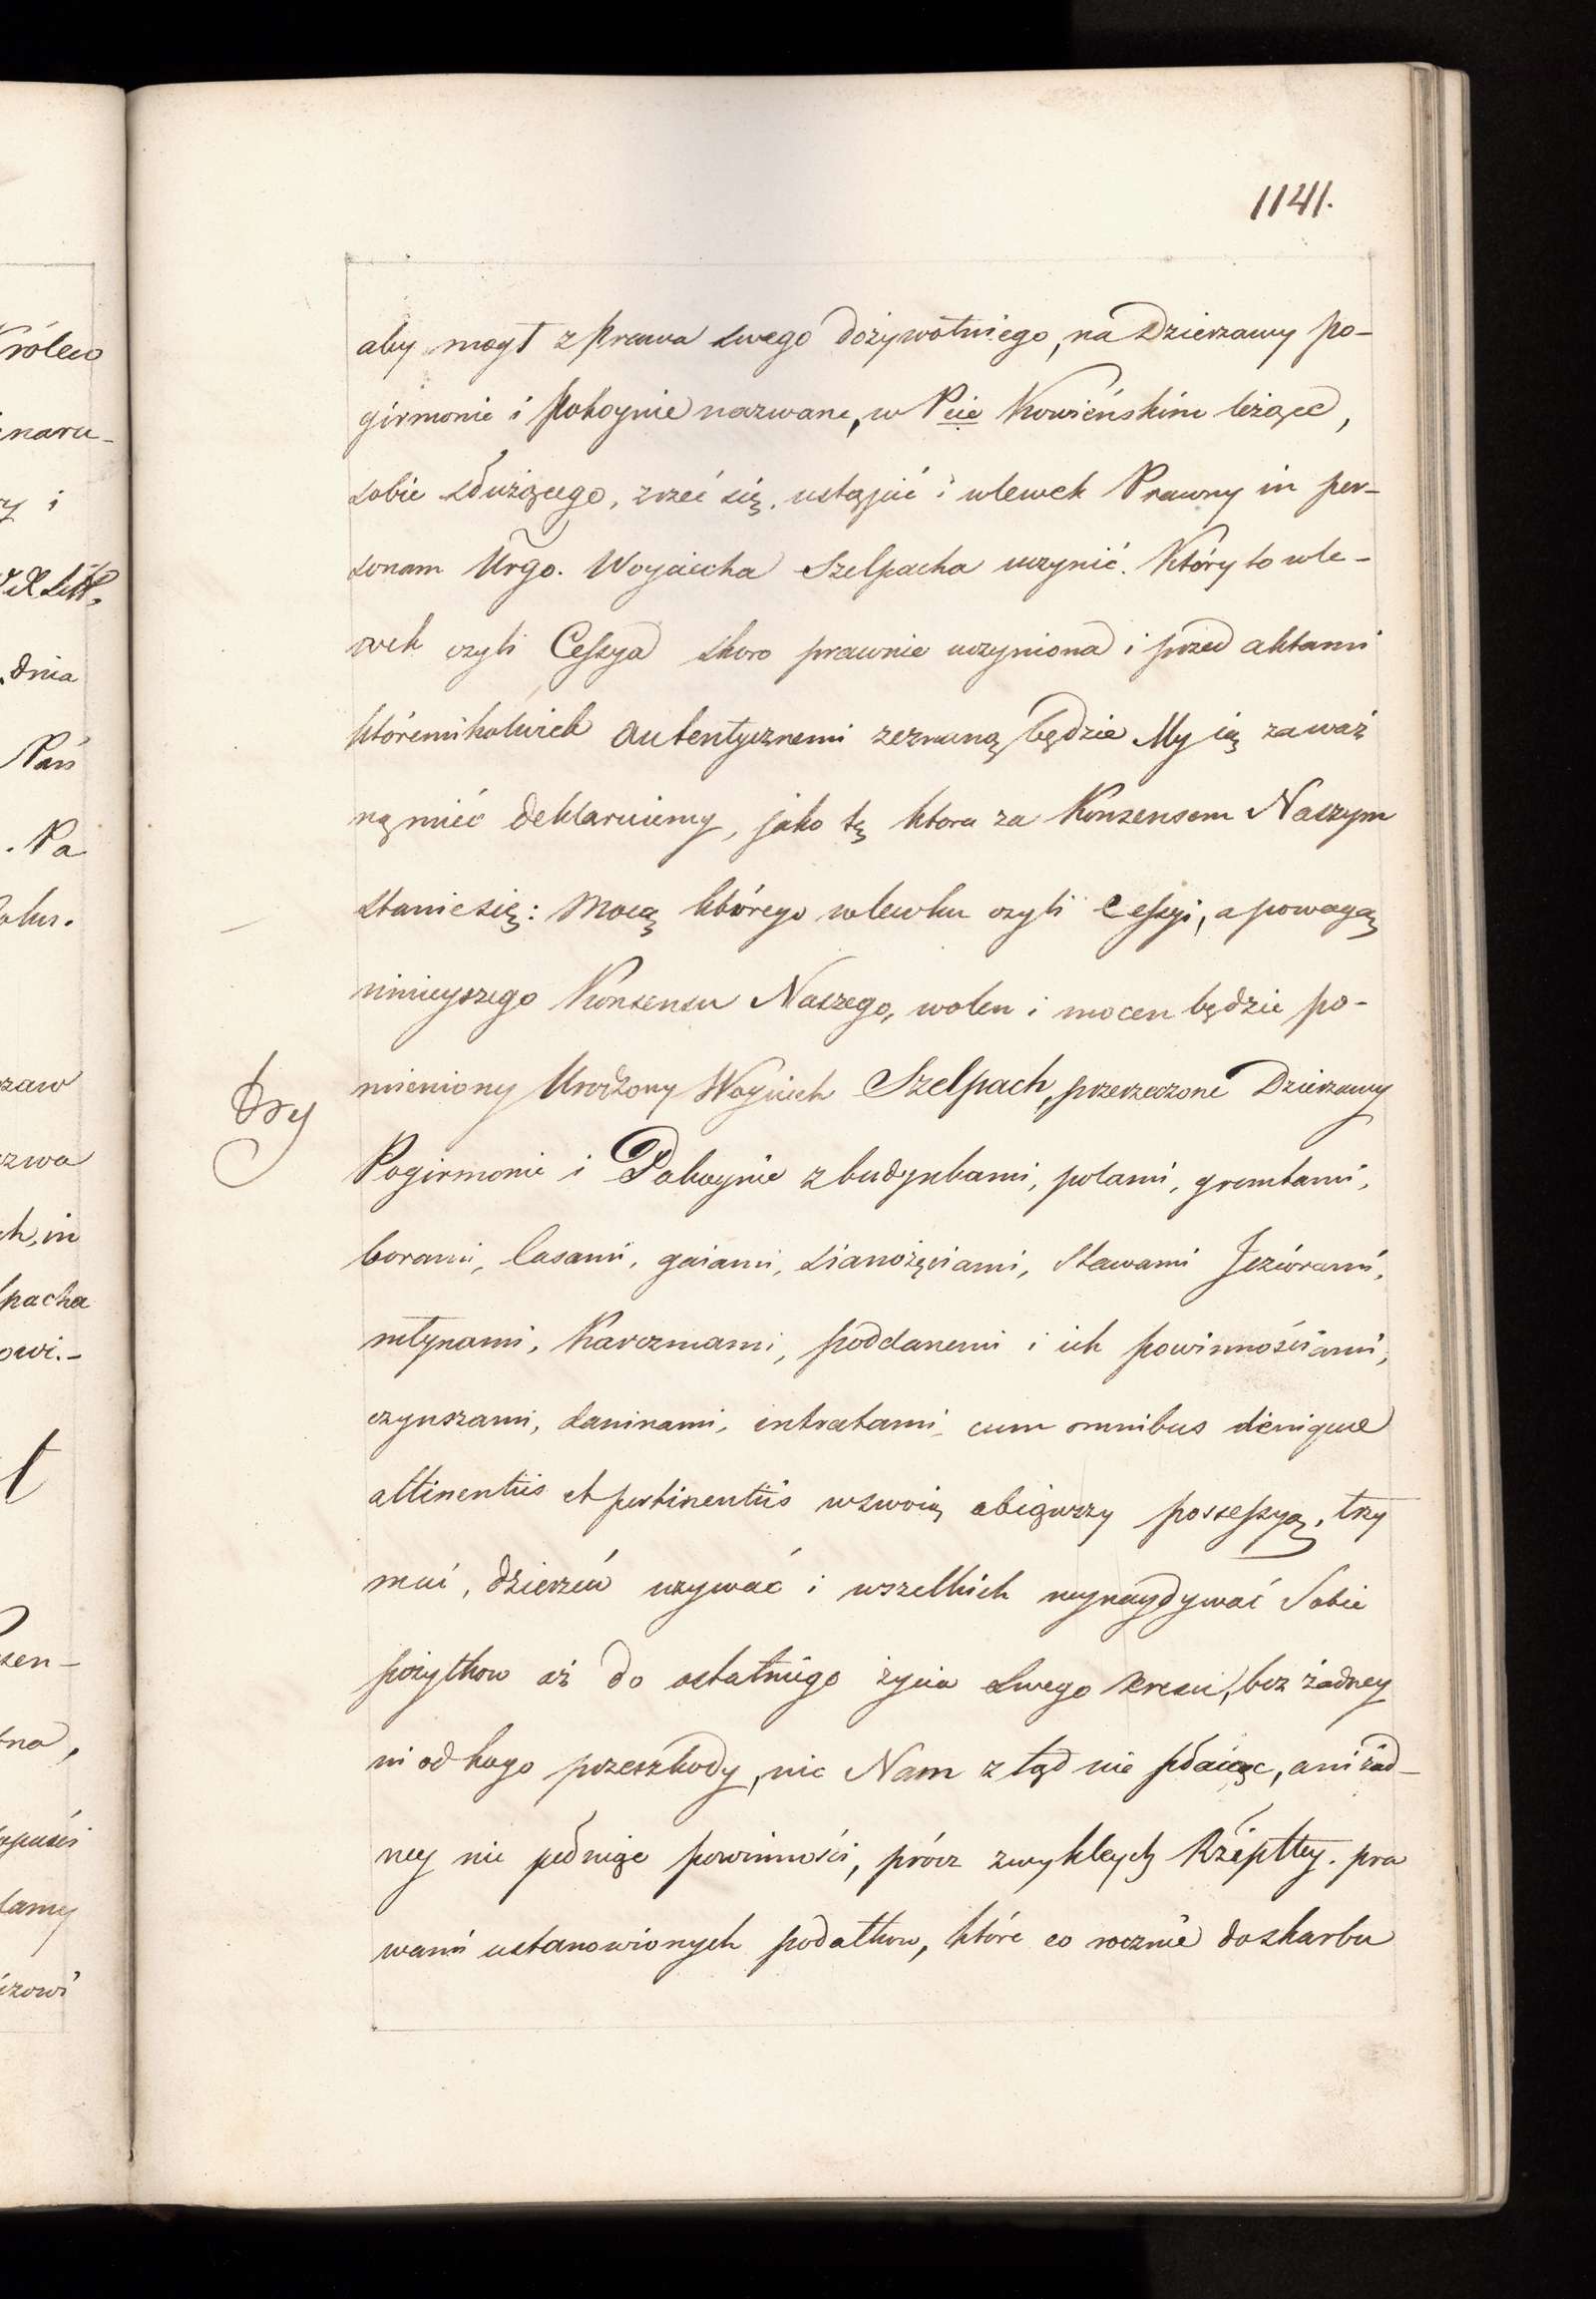 1141.
aby mogł z prawa swego dożywotniego, na Dzierzawy po-
girmonie i pokoynie nazwane, w Pcie Kowieńskim leżące,
sobie służącego, zrzec się, ustąpić i wlewek Prawny in per-
sonam Urgo. Woyciecha Szelpacha uczynić. Który to wle-
wek czyli Cessya skoro prawnie uczyniona i przed aktami
któremikolwiek autentycznemi zeznaną będzie My ią za waż
ną mieć deklaruiemy, jako tę ktora za Konsensem Naszym
stanie się: Mocą którego wlewku czyli cessyi, a powagą
ninieyszego Konsensu Naszego, wolen i mocen będzie po-
mieniony Urodzony Woyciech Szelpach, przerzeczone Dzierzawy
Pogirmonie i Pokoynie z budynkami, polami, gruntami,
borami, lasami, gaiami, sianożęciami, stawami Jeziórami,
młynami, Karczmami, poddanemi i ich powinnościami,
czynszami, daninami, intratami, cum omnibus denique
attinentiis et pertinentiis w swoią obiąwszy possessyą, trzy
mać, dzierżeć uzywać i wszelkich wynaydywać Sobie
pożytkow aż do ostatniego życia swego kresu, bez żadney
ni od kogo przeszkody, nic Nam z tąd nie płaiąc, ani żad-
ney nie pełniąc powinności, prócz zwykłych Rzeptey. pra
wami ustanowionych podatkow, które co rocznie do skarbu
Królew
naru-
y i
dnia
Pań
. Pa
zaw
zwa
ch, in
lpacha
owi.-
sen-
tna,